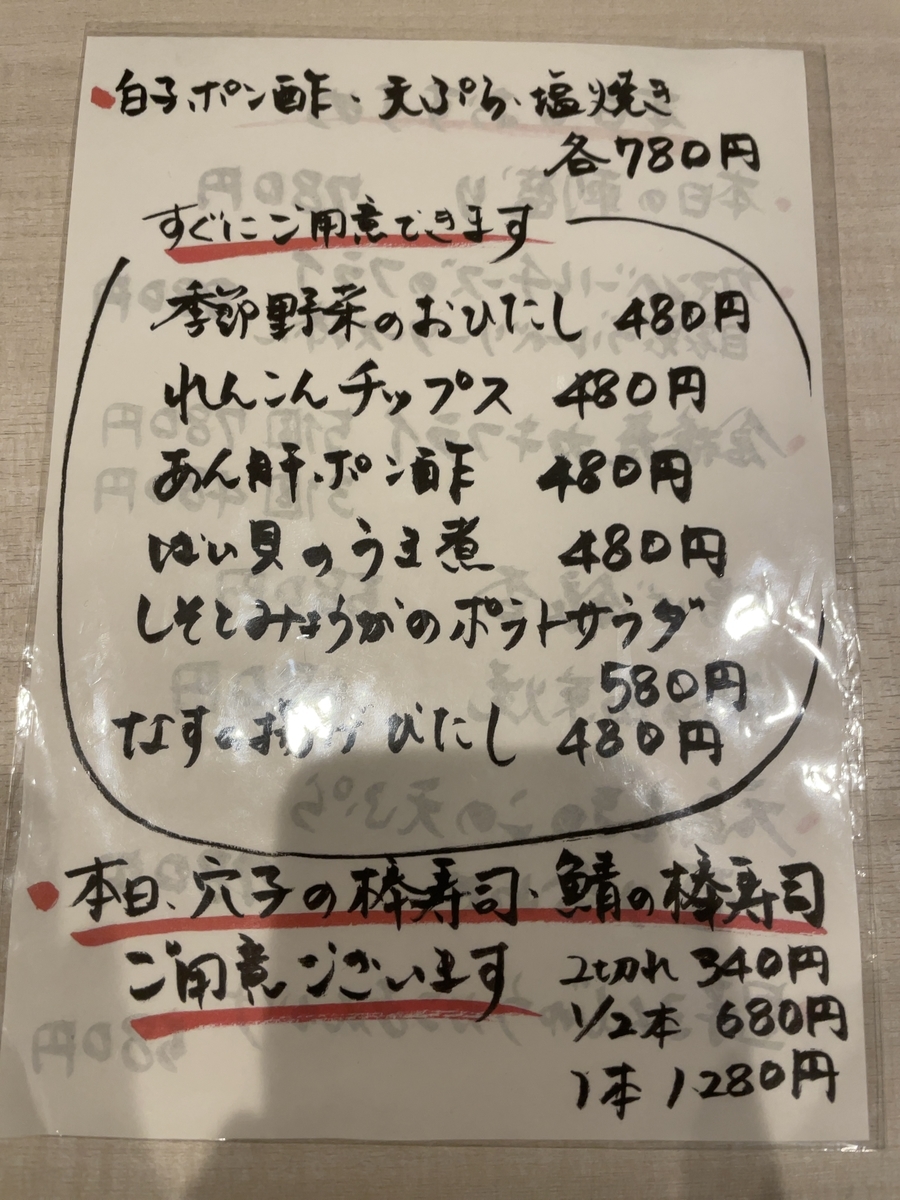 白子ポン酢・天ぷら・塩焼き
各780円
すぐにご用意できます
季節野菜のおひたし 480円
れんこんチップス 480円
あん肝ポン酢 480円
ばい貝のうま煮 480円
しそとみょうがのポテトサラダ
580円
なすの揚げびたし 480円
本日、穴子の棒寿司・鯖の棒寿司
ご用意ございます
2切れ 340円
1/2本 680円
1本 1,280円